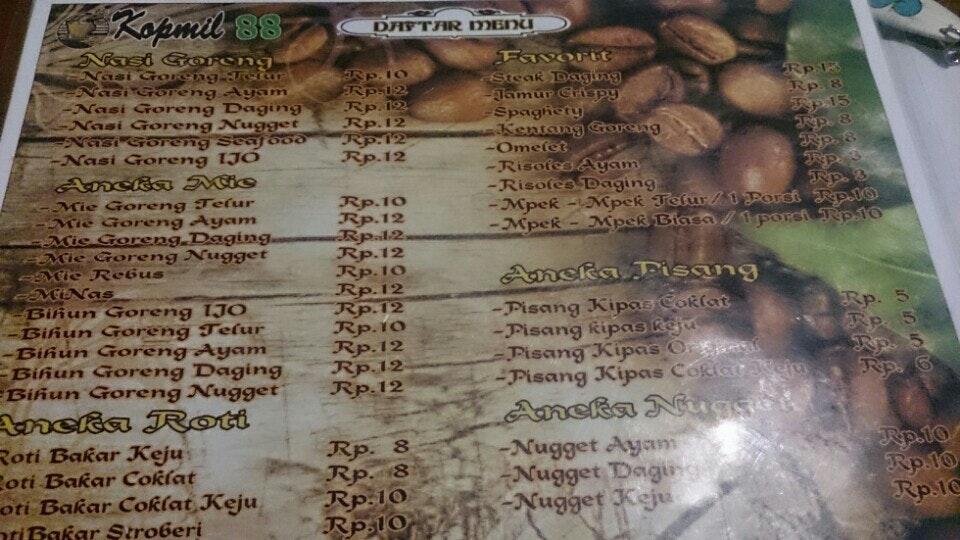 Kopmil 88
DAFTAR MENU
Nasi Goreng
-Nasi Goreng Telur Rp.10
-Nasi Goreng Ayam Rp.12
-Nasi Goreng Daging Rp.12
-Nasi Goreng Nugget Rp.12
-Nasi Goreng Seafood Rp.12
-Nasi Goreng IJO Rp.12
Aneka Mie
-Mie Goreng Telur Rp.10
-Mie Goreng Ayam Rp.12
-Mie Goreng Daging Rp.12
-Mie Goreng Nugget Rp.12
-Mie Rebus Rp.10
-MiNas Rp.12
-Bihun Goreng IJO Rp.12
-Bihun Goreng Telur Rp.10
-Bihun Goreng Ayam Rp.12
-Bihun Goreng Daging Rp.12
-Bihun Goreng Nugget Rp.12
Aneka Roti
Roti Bakar Keju Rp. 8
Roti Bakar Coklat Rp. 8
Roti Bakar Coklat Keju Rp.10
Roti Bakar Stroberi Rp.10
Favorit
-Steak Daging Rp.15
-Jamur Crispy Rp. 8
-Spaghety Rp.15
-Kentang Goreng Rp. 8
-Omelet Rp.
-Risoles Ayam Rp. 3
-Risoles Daging Rp. 3
-Mpek - Mpek Telur / 1 Porsi Rp.10
-Mpek - Mpek Biasa / 1 porsi Rp.10
Aneka Pisang
-Pisang Kipas Coklat Rp. 5
-Pisang kipas keju Rp. 5
-Pisang Kipas Original Rp. 5
-Pisang Kipas Coklat Keju Rp. 6
Aneka Nugget
-Nugget Ayam Rp.10
-Nugget Daging Rp.10
-Nugget Keju Rp.10